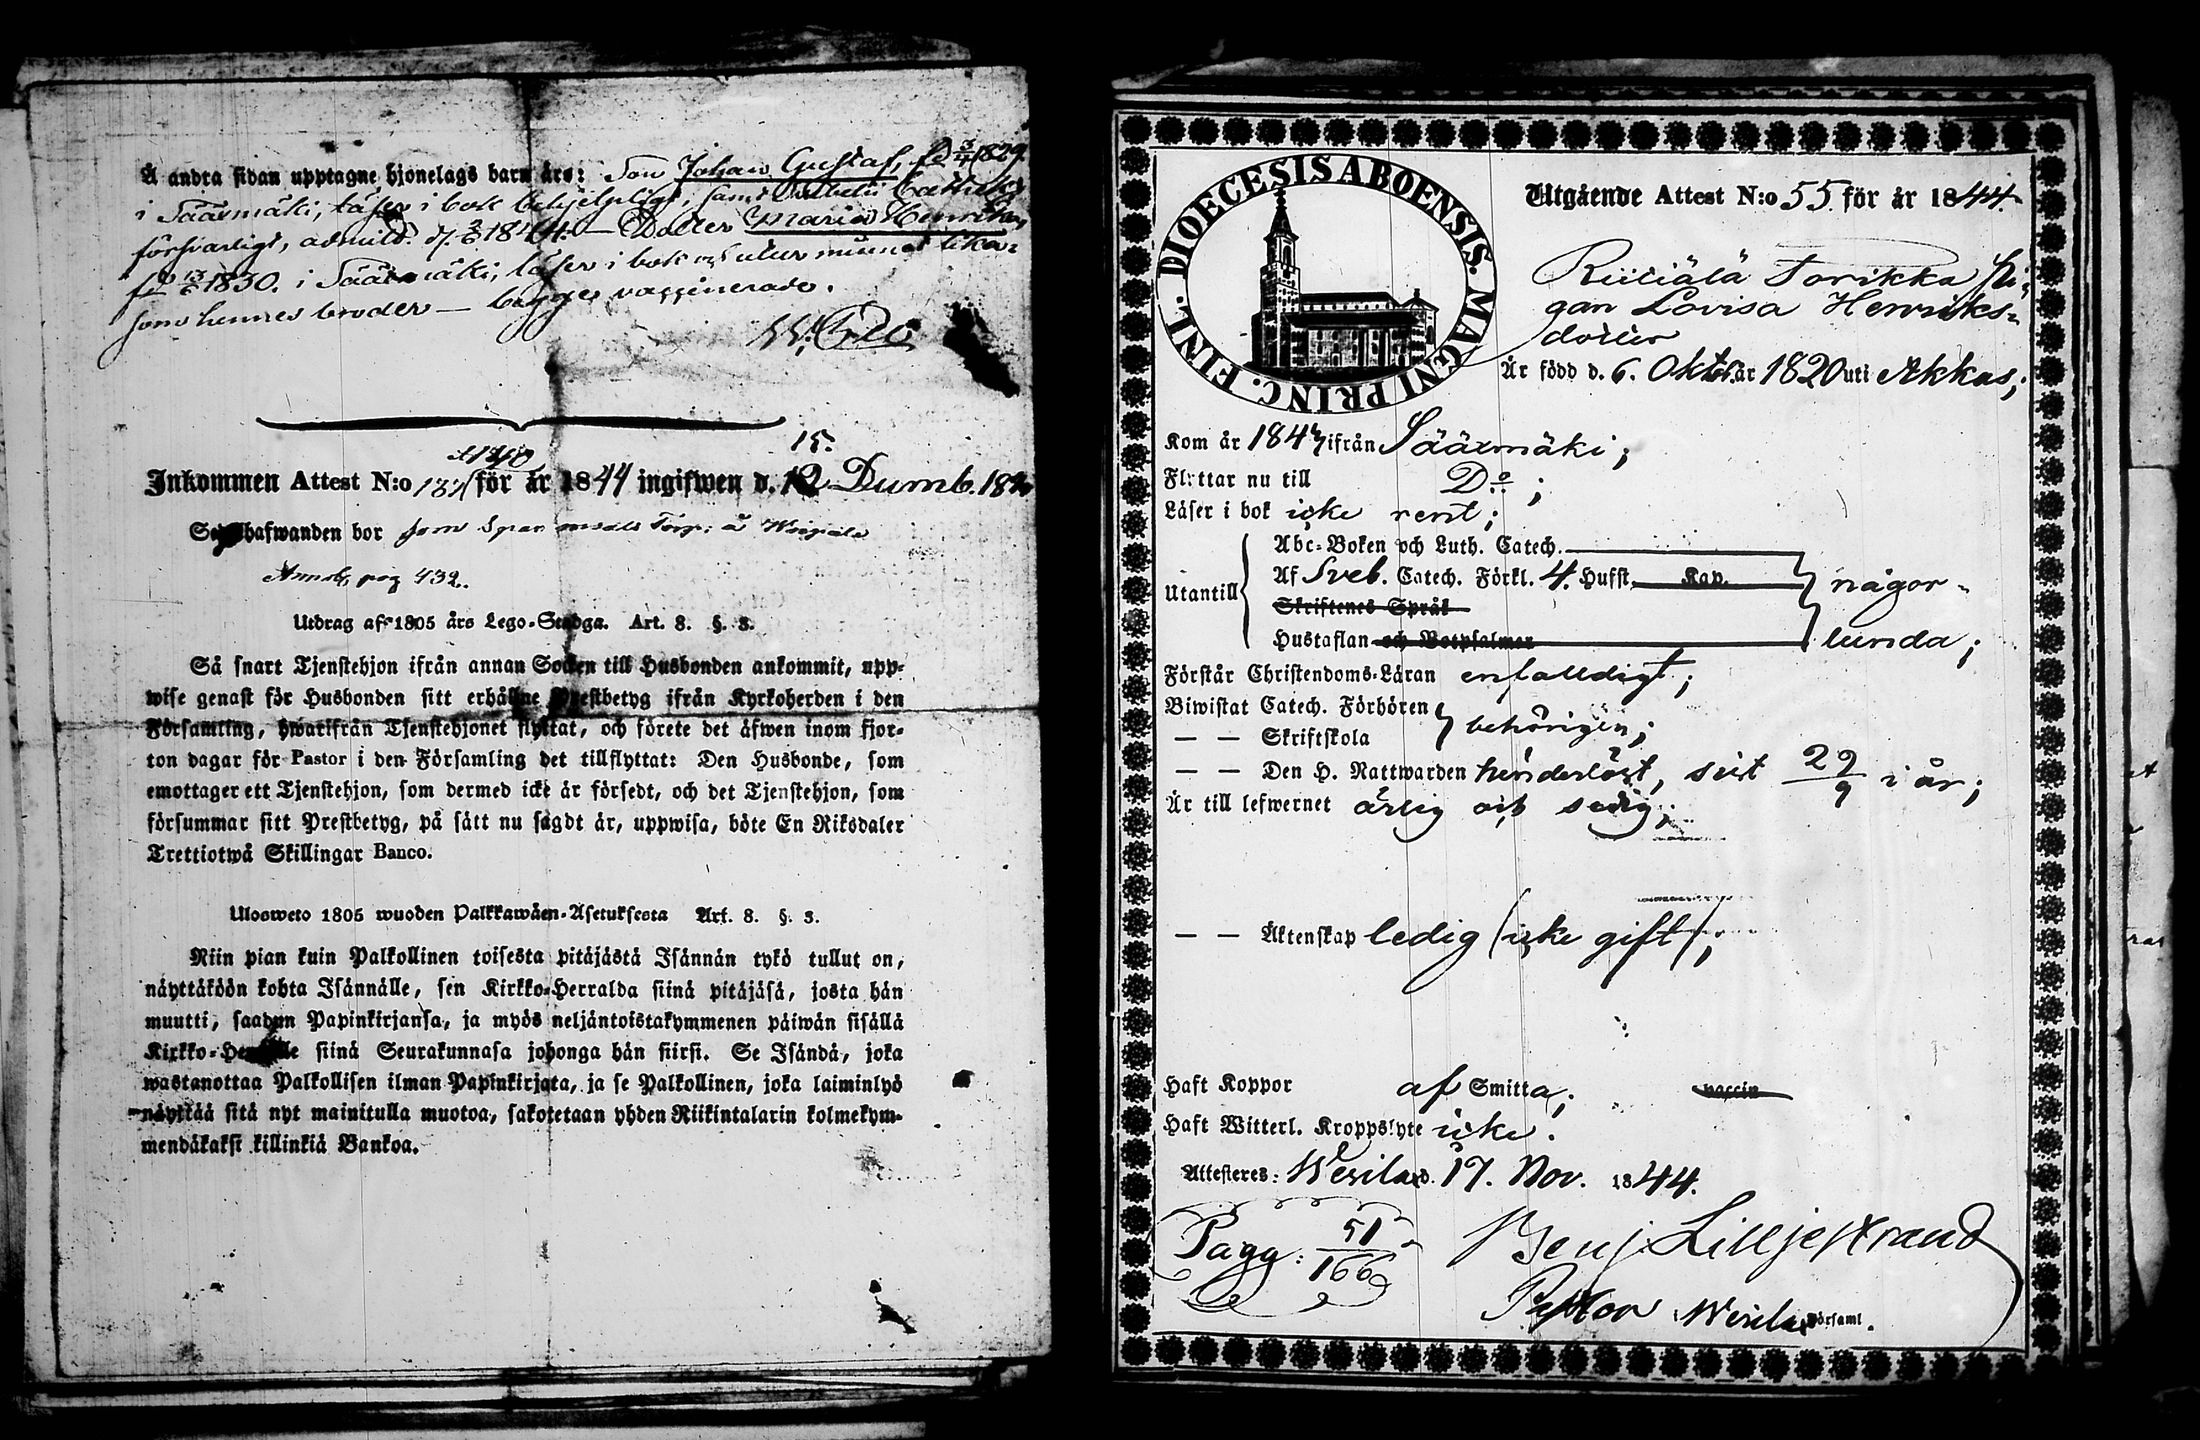 Å andra sidan upptagne hjonelags barn äro: Son Johan Gustaf, fd 3/4 1829
i Säärmäki, läser i bok behjelpligt, samt
försvarligt, admitt. d. 1844. — Dotter Maria Henrika,
fd 13/6 1830. i Säärmäki, läser i bok och utur minnet lika
som hennes broder — begge vaccinerade.
15.
Inkommen Attest N:o 137 för år 1844 ingifwen d. 12 Decemb. 18
hafwanden bor som Torp: å
pag 432.
Utdrag af 1805 års Lego-Stadga. Art. 8. §. 3.
Så snart Tjenstehjon ifrån annan Socken till Husbonden ankommit, upp-
wise genast för Husbonden sitt erhållne Prestbetyg ifrån Kyrkoherden i den
Församling, hwarifrån Tjenstehjonet flyttat, och förete det äfwen inom fjor-
ton dagar för Pastor i den Församling det tillflyttat: Den Husbonde, som
emottager ett Tjenstehjon, som dermed icke är försedt, och det Tjenstehjon, som
försummar sitt Prestbetyg, på sätt nu sagdt är, uppwisa, böte En Riksdaler
Trettiotwå Skillingar Banco.
Ulosweto 1805 wuoden Palkkawäen-Asetuksesta Art. 8. §. 3.
Niin pian kuin Palkollinen toisesta pitäjästä Isännän tykö tullut on,
näyttäköön kohta Isännälle, sen Kirkko-Herralda siinä pitäjäsä, josta hän
muutti, saadun Papinkirjansa, ja myös neljäntoistakymmenen päiwän sisällä
Kirkko-Herralle siinä Seurakunnasa johonga hän siirsi. Se Isändä, joka
wastanottaa Palkollisen ilman Papinkirjata, ja se Palkollinen, joka laiminlyö
näyttää sitä nyt mainitulla muotoa, sakotetaan yhden Riikintalarin kolmekym-
mendäkaksi killinkiä Bankoa.
DIOECESIS ABOENSIS. MAGNI PRINC. FINL.
Utgående Attest N:o 55 för år 1844.
Torikka Pi-
gan Lovisa Henriks-
dotter
Är född d. 6. Oktob. år 1820 uti Akkas;
Kom år 184 ifrån Säärmäki;
Flyttar nu till D:o;
Läser i bok icke rent;
Abc-Boken och Luth. Catech.
Utantill Af Sveb. Catech. Förkl. 4. Hufst. Kap. någor-
Skriftenes Språk
Hustaflan och Botpsalmer lunda;
Förstår Christendoms-Läran enfalldigt;
Biwistat Catech. Förhören
— — Skriftskola behörigen;
— — Den H. Nattwarden hinderlöst, sist 29/9 i år;
Är till lefwernet ärlig och sedig;
— — Äktenskap ledig (icke gift);
Haft Koppor af Smitta; vaccin
Haft Witterl. Kroppslyte icke.
Attesteres: Wesilax d. 17. Nov. 1844.
Pagg: 51/166
Benj. Lilljestrand
Pastor i Wesilax Församl.